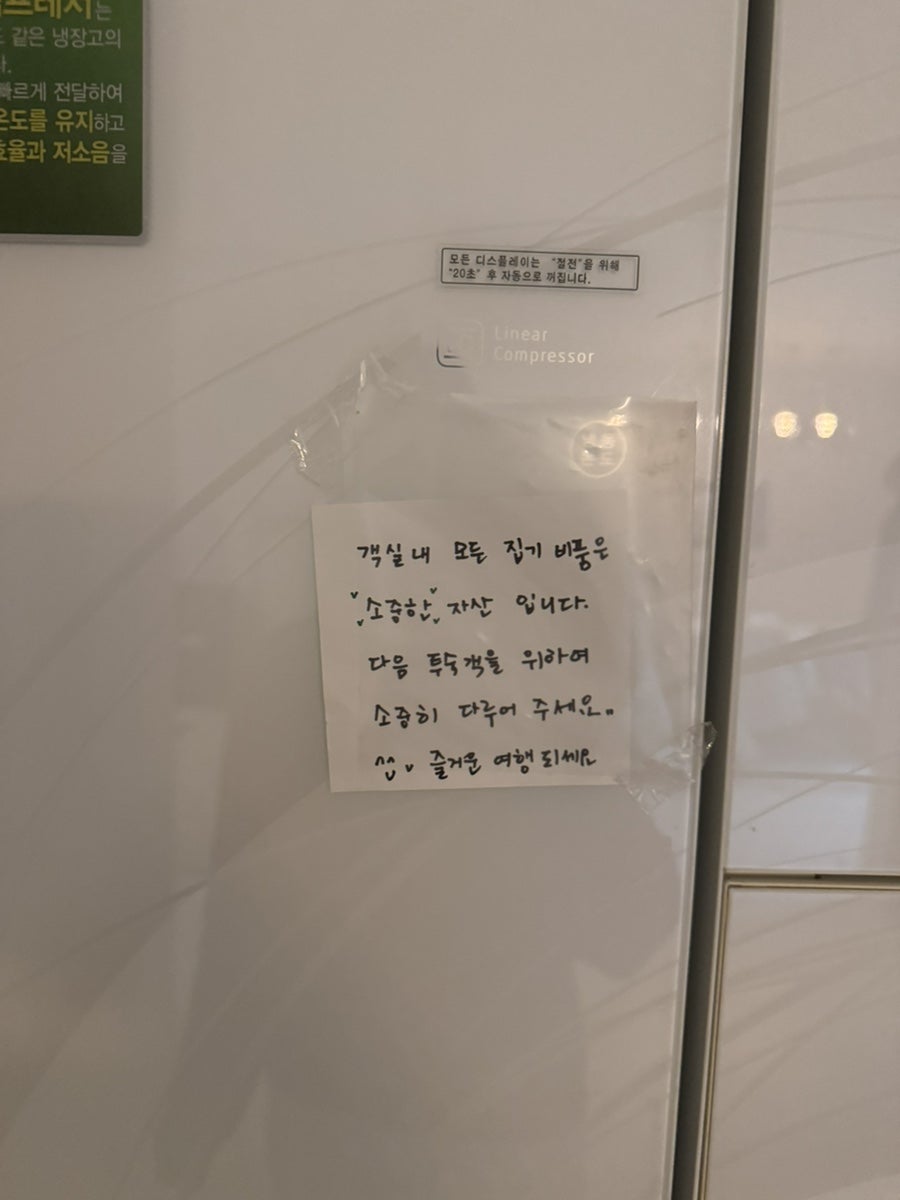 프레서는
같은 냉장고의
빠르게 전달하여
온도를 유지하고
효율과 저소음을
모든 디스플레이는 "절전"을 위해
"20초" 후 자동으로 꺼집니다.
Linear
Compressor
객실내 모든 집기 비품은
"소중한" 자산 입니다.
다음 투숙객을 위하여
소중히 다루어 주세요..
^^ 즐거운 여행 되세요